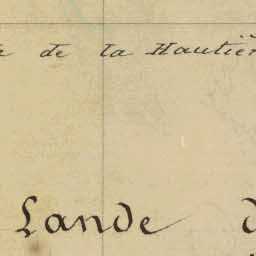 de la Hautiè
Lande d